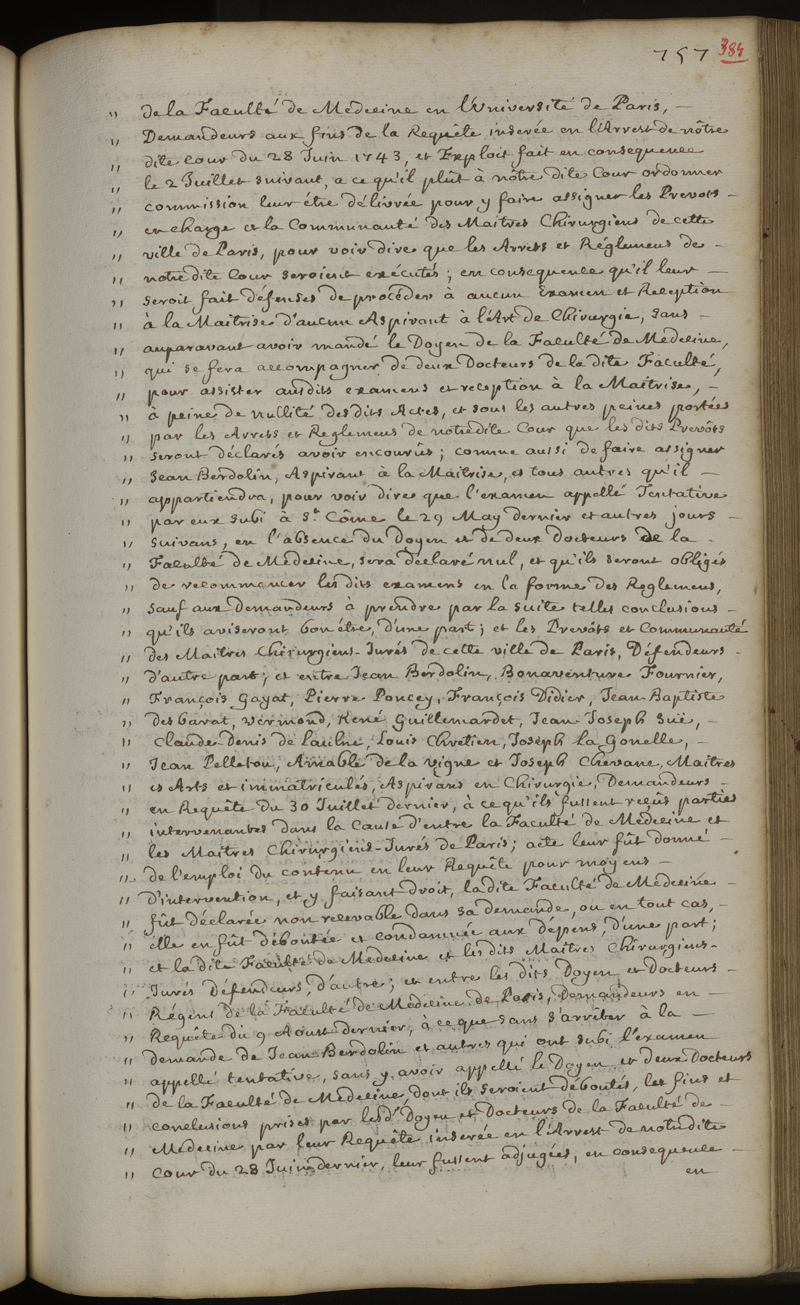 757 384
" de la Faculté de Medecine en l'Université de Paris, –
" Demandeurs aux fins de la Requête inserée en l'Arrest de nôtre
" dite Cour du 28 Juin 1743, et Exploit fait en consequence
" le 2 Juillet suivant, a ce qu'il plût à nôtre dite Cour ordonner
" commission leur être délivrée pour y faire assigner les Prevots –
" en charge et la Communauté des Maitres Chirurgiens de cette
" ville de Paris, pour voir dire que les Arrets et Réglemens de –
" notre dite Cour seroient exécutés ; en consequence qu'il leur –
" seroit fait défenses de procéder à aucun Examen et Reception
" à la Maitrise d'aucun Aspirant à l'Art de Chirurgie, sans –
" auparavant avoir mandé le Doyen de la Faculté de Medecine,
" qui se fera accompagner de deux Docteurs de la dite Faculté,
" pour assister ausdits examens et reception à la Maitrise, –
" à peine de nullité desdits Actes, et sous les autres peines portées
" par les Arrets et Reglemens de notredite Cour que les dits Prevôts
" seront déclarés avoir encourûs ; comme aussi de faire assigner
" Jean Berdolin, Aspirant à la Maitrise, et tous autres qu'il –
" appartiendra, pour voir dire que l'examen appellé Tentative
" par eux subi à St. Côme le 29 May dernier et autres jours –
" suivans, en l'absence du Doyen et de deux Docteurs de la –
" Faculté de Medecine, sera déclaré nul, et qu'ils seront obligés
" de recommencer lesdits examens en la forme des Reglemens,
" sauf aux Demandeurs à prendre par la suite telles conclusions –
" qu'ils aviseront bon être, d'une part ; et les Prevôts et Communauté
" des Maitres Chirurgiens-Jurés de cette ville de Paris, Défendeurs –
" d'autre part ; et entre Jean Berdolin, Bonaventure Fournier,
" François Gayat, Pierre Poncey, François Didier, Jean-Baptiste
" Desbarat, Vermond, René Guillemardet, Jean Joseph Sue, –
" Claude-Denis de Laulne, Louis Chretien, Joseph la Gonelle, –
" Jean Pelletou, Amable de la Vigne et Joseph Chevane, Maitres
" es Arts et immatriculés, Aspirans en Chirurgie, Demandeurs –
" en Requête du 30 Juillet dernier, à ce qu'ils fussent reçûs parties
" intervenantes dans la Cause d'entre la Faculté de Medecine et
" les Maitres Chirurgiens-Jurés de Paris ; acte leur fût donné –
" de l'emploi du contenu en leur Requête pour moyens –
" d'intervention, et y faisant droit, la dite Faculté de Medecine –
" fût déclarée non recevable dans sa demande, ou en tout cas, –
" elle en fût déboutée et condamnée aux dépens, d'une part ;
" et la dite Faculté de Medecine et les dits Maitres Chirurgiens–
" Jurés Défendeurs, d'autre ; et entre les dits Doyen et Docteurs –
" Régens de la Faculté de Medecine de Paris, Demandeurs en –
" Requête du 9 Aoust dernier, à ce que sans s'arrêter à la –
" demande de Jean Berdolin et autres qui ont subi l'examen
" appellé tentative, sans y avoir appellé le Doyen et deux Docteurs
" de la Faculté de Medecine, dont ils seroient déboutés, les fins et
" conclusions prises par lesd. Doyen et Docteurs de la Faculté de –
" Medecine par leur Requête inserée en l'Arrest de notredite
" Cour du 28 Juin dernier, leur fussent adjugées, en consequence –
en